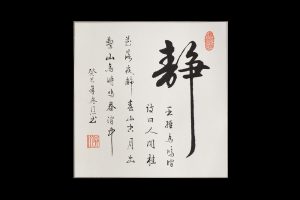 靜
王維鳥鳴澗
詩曰人閒桂
花落夜靜春山空月出
驚山鳥時鳴春澗中